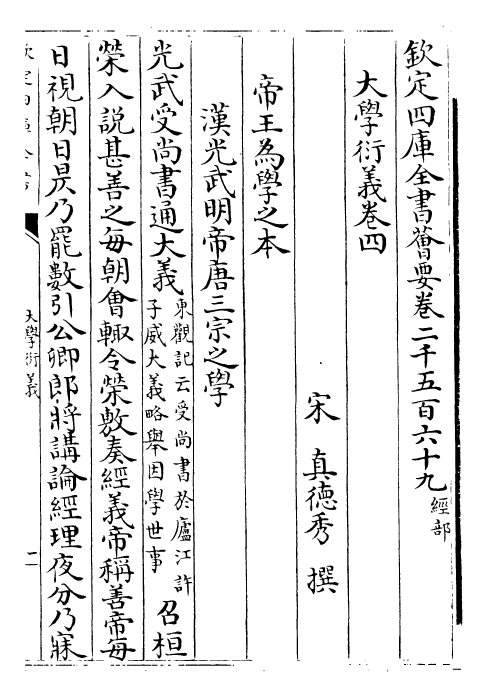 欽定四庫全書薈要卷二千五百六十九經部
大學衍義卷四
宋 真德秀 撰
帝王為學之本
漢光武明帝唐三宗之學
光武受尚書通大義東觀記云受尚書於廬江許子威大義略舉因學世事召桓
榮入說甚善之每朝會輒令榮敷奏經義帝稱善帝每
日視朝日昃乃罷數引公卿郎將講論經理夜分乃寐
欽定四庫全書
大學衍義
二